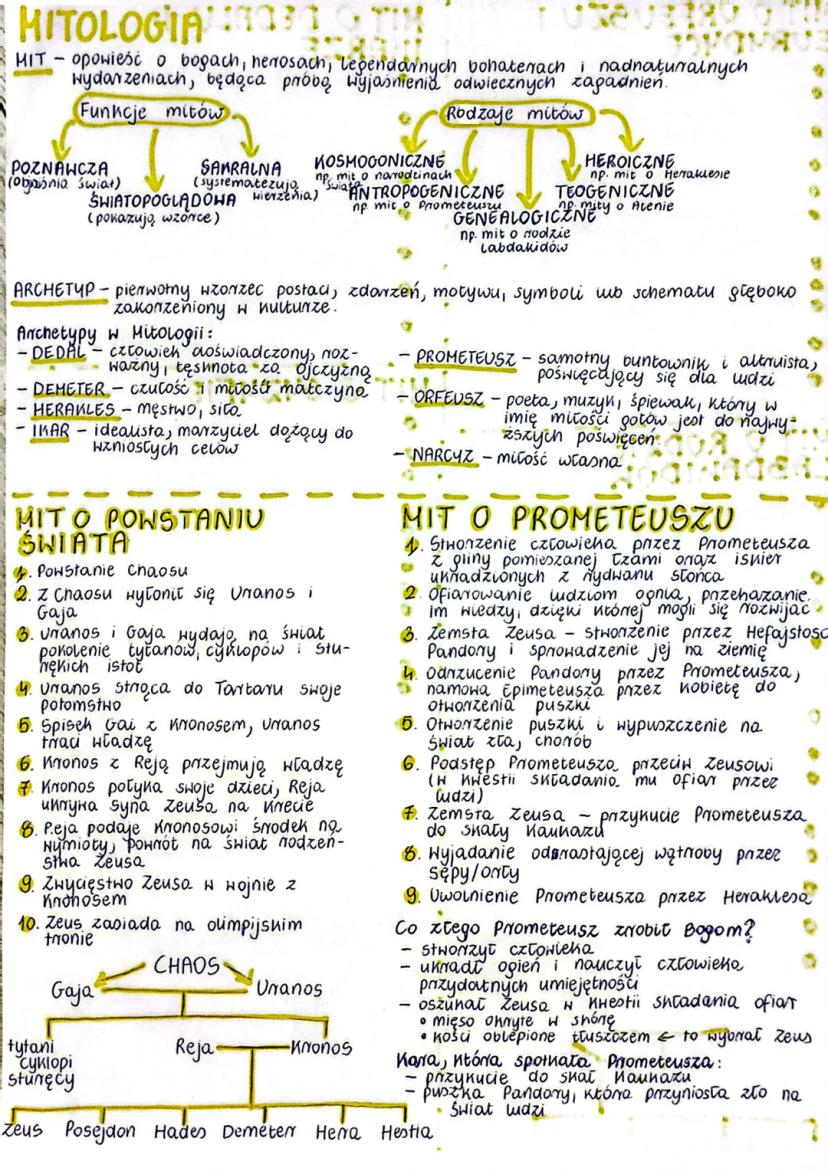 MITOLOGIA
MIT – opowieść o bogach, herosach, legendarnych bohaterach i nadnaturalnych
wydarzeniach, będąca próbą wyjaśnienia odwiecznych zagadnień.
Funkcje mitów
POZNAWCZA
(objaśnia świat)
ŚWIATOPOGLĄDOWA
(pokazują wzorce)
SAKRALNA
(systematezują
wierzenia)
Rodzaje mitów
KOSMOGONICZNE
np. mit o narodzinach
świata
ANTROPOGENICZNE
np. mit o Prometeuszu
GENEALOGICZNE
np. mit o rodzie
Labdakidów
TEOGENICZNE
np. mity o Atenie
HEROICZNE
np. mit o Heraklesie
ARCHETYP – pierwotny wzorzec postaci, zdarzeń, motywu, symboli lub schematu głęboko
zakorzeniony w kulturze.
Archetypy w Mitologii:
– DEDAL – człowiek doświadczony, roz-
ważny, tęsknota za ojczyzną
– DEMETER – czułość i miłość matczyna
– HERAKLES – męstwo, siła
– IKAR – idealista, marzyciel dążący do
wzniosłych celów
– PROMETEUSZ – samotny buntownik i altruista,
poświęcający się dla ludzi
– ORFEUSZ – poeta, muzyk, śpiewak, który w
imię miłości gotów jest do najwy-
ższych poświęceń
– NARCYZ – miłość własna
MIT O POWSTANIU
ŚWIATA
1. Powstanie Chaosu
2. Z Chaosu wyłonił się Uranos i
Gaja
3. Uranos i Gaja wydają na świat
pokolenie tytanów, cyklopów i stu-
rękich istot
4. Uranos strąca do Tartaru swoje
potomstwo
5. Spisek Gai z Kronosem, Uranos
traci władzę
6. Kronos z Reją przejmują władzę
7. Kronos połyka swoje dzieci, Reja
ukrywa syna Zeusa na Krecie
8. Reja podaje Kronosowi środek na
wymioty, powrót na świat rodzeń-
stwa Zeusa
9. Zwycięstwo Zeusa w wojnie z
Kronosem
10. Zeus zasiada na olimpijskim
tronie
CHAOS
Gaja Uranos
tytani
cyklopi
sturęcy
Reja Kronos
Zeus Posejdon Hades Demeter Hera Hestia
MIT O PROMETEUSZU
1. Stworzenie człowieka przez Prometeusza
z gliny pomieszanej łzami oraz iskier
ukradzionych z rydwanu słońca
2. Ofiarowanie ludziom ognia, przekazanie
im wiedzy, dzięki której mogli się rozwijać
3. Zemsta Zeusa – stworzenie przez Hefajstosa
Pandory i sprowadzenie jej na ziemię
4. Odrzucenie Pandory przez Prometeusza,
namowa Epimeteusza przez kobietę do
otworzenia puszki
5. Otworzenie puszki i wypuszczenie na
świat zła, chorób
6. Podstęp Prometeusza przeciw Zeusowi
(w kwestii składania mu ofiar przez
ludzi)
7. Zemsta Zeusa – przykucie Prometeusza
do skały Kaukazu
8. Wyjadanie odrastającej wątroby przez
sępy/orły
9. Uwolnienie Prometeusza przez Heraklesa
Co złego Prometeusz zrobił Bogom?
– stworzył człowieka
– ukradł ogień i nauczył człowieka
przydatnych umiejętności
– oszukał Zeusa w kwestii składania ofiar
• mięso okryte w skórę
• kości oblepione tłuszczem ← to wybrał Zeus
Kara, która spotkała Prometeusza:
– przykucie do skał Kaukazu
– puszka Pandory, która przyniosła zło na
świat ludzi